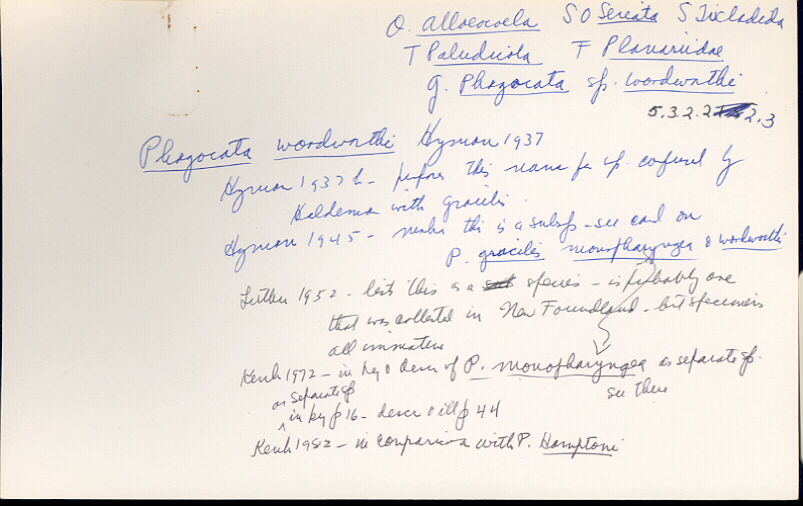 O. Alloeocoela SO Seriata S Tricladida
T Paludicola F Planariidae
g. Phagocata sp. woodworthi
5.3.2.2 2.3
Phagocata woodworthi Hyman 1937
Hyman 1937 b - proposes this name for sp. confused by
Haldeman with gracilis.
Hyman 1945 - makes this is a subsp - see card on
P. gracilis monopharyngea & woodworthi
1952 - lists this as a species - is probably one
that was collected in New Foundland - but specimens
all immature
Kenk 1972 - in key & descr of P. monopharyngea as separate sp.
see there
as separate sp
^ in key p 16 - descr & ill p 44
Kenk 1982 - in comparison with P. Hamptoni